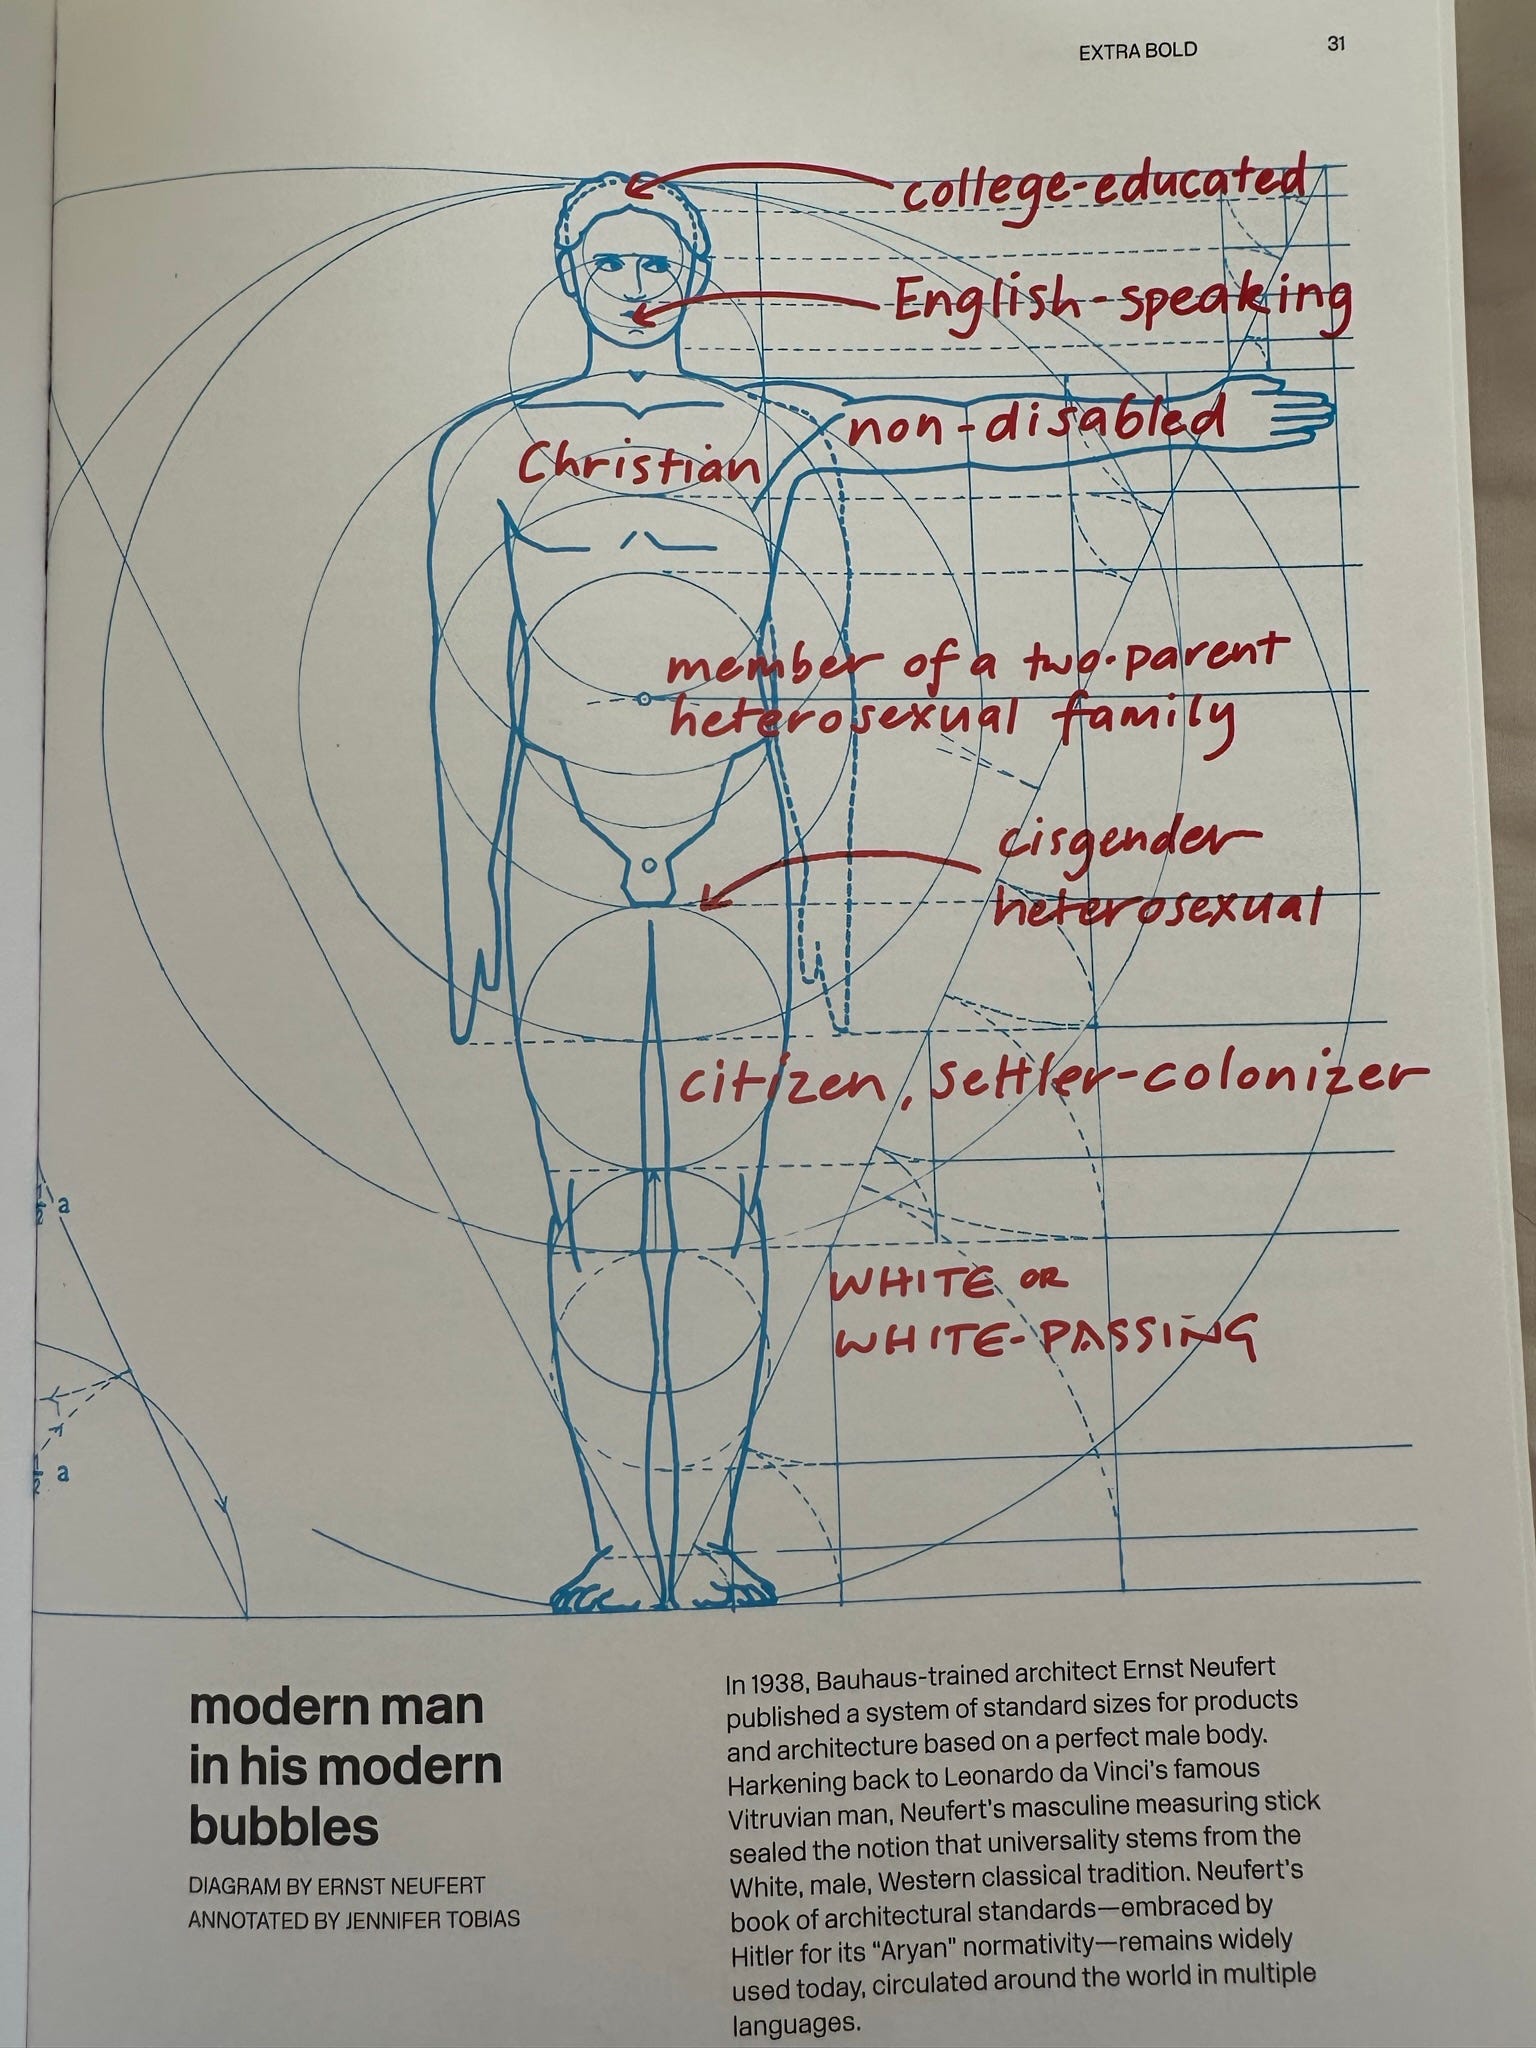 EXTRA BOLD 31
college-educated
English-speaking
non-disabled
Christian
member of a two-parent
heterosexual family
cisgender
heterosexual
citizen, settler-colonizer
WHITE OR
WHITE-PASSING
a
a
modern man
in his modern
bubbles
DIAGRAM BY ERNST NEUFERT
ANNOTATED BY JENNIFER TOBIAS
In 1938, Bauhaus-trained architect Ernst Neufert
published a system of standard sizes for products
and architecture based on a perfect male body.
Harkening back to Leonardo da Vinci's famous
Vitruvian man, Neufert's masculine measuring stick
sealed the notion that universality stems from the
White, male, Western classical tradition. Neufert's
book of architectural standards—embraced by
Hitler for its "Aryan" normativity—remains widely
used today, circulated around the world in multiple
languages.